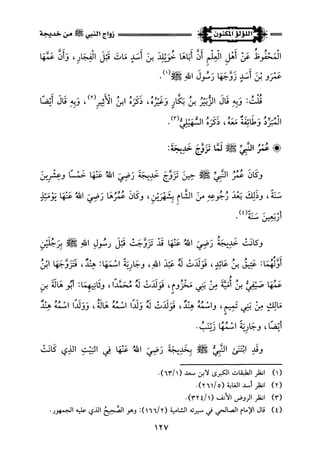 اللؤلؤ المكنون
زواج النبي ﷺ من خديجة
الْمَحْفُوظُ عَنْ أَهْلِ الْعِلْمِ أَنَّ أَبَاهَا خُوَيْلِدَ بنَ أَسَدٍ مَاتَ قَبْلَ الْفِجَارِ، وَأَنَّ عَمَّهَا
عَمْرَو بْنَ أَسَدٍ زَوَّجَهَا رَسُولَ اللهِ ﷺ (١).
قُلْتُ: وَبِهِ قَالَ الزُّبَيْرُ بْنُ بَكَّارٍ وَغَيْرُهُ، ذَكَرَهُ ابنُ الْأَثِيْرِ(٢)، وَبِهِ، قَالَ أَيْضًا
الْمُبَرِّدُ وَطَائِفَةٌ مَعَهُ، ذَكَرَهُ السُّهَيْلِيُّ(٣).
عُمْرُ النَّبِيِّ ﷺ لَمَّا تَزَوَّجَ خَدِيجَةَ:
وَكَانَ عُمْرُ النَّبِيِّ ﷺ حِينَ تَزَوَّجَ خَدِيجَةَ رَضِيَ اللهُ عَنْهَا خَمْسًا وعِشْرِينَ
سَنَةً، وَذَلِكَ بَعْدَ رُجُوعِهِ منَ الشَّامِ بِشَهْرَيْنِ، وَكَانَ عُمْرُهَا رَضِيَ اللهُ عَنْهَا يَوْمَئِذٍ
أَرْبَعِينَ سَنَةً(٤).
وكانَتْ خَدِيْجَةُ رَضِيَ اللهُ عَنْهَا قَدْ تَزَوَّجَتْ قَبْلَ رسُولِ اللهِ ﷺ بِرَجُلَيْنِ
أَوَّلُهُمَا: عَتِيقُ بنُ عَائِدٍ، فَوَلَدَتْ لَهُ عَبْدَ اللهِ، وَجَارِيَةً اسْمُهَا: هِنْدٌ، فَتَزَوَّجَهَا ابْنُ
عَمِّهَا صَيْفِيُّ بنُ أُمَيَّةَ مِنْ بَنِي مَخْزُومٍ، فَوَلَدَتْ لَهُ مُحَمَّدًا، وثَانِيهِمَا: أبُو هَالَةَ بنَ
مَالِكٍ مِنْ بَنِي تَمِيمٍ، واسْمُهُ هِنْدٌ، فَوَلَدَتْ لَهُ وَلَدًا اسْمُهُ هَالَةُ، وَوَلَدًا اسْمُهُ هِنْدٌ
أيْضًا، وَجَارِيَةً اسْمُهَا زَيْنَبُ.
وَقَدِ ابْتَنَى النَّبِيُّ ﷺ بِخَدِيْجَةَ رَضِيَ اللهُ عَنْهَا فِي الْبَيْتِ الذِي كَانَتْ
(١) انظر الطبقات الكبرى لابن سعد (٦٣/١).
(٢) انظر أسد الغابة (٢٦١/٥).
(٣) انظر الروض الأنف (٣٢٤/١).
(٤) قال الإمام الصالحي في سيرته الشامية (١٦٦/٢): وهو الصَّحِيحُ الذي عليه الجمهور.
١٢٧